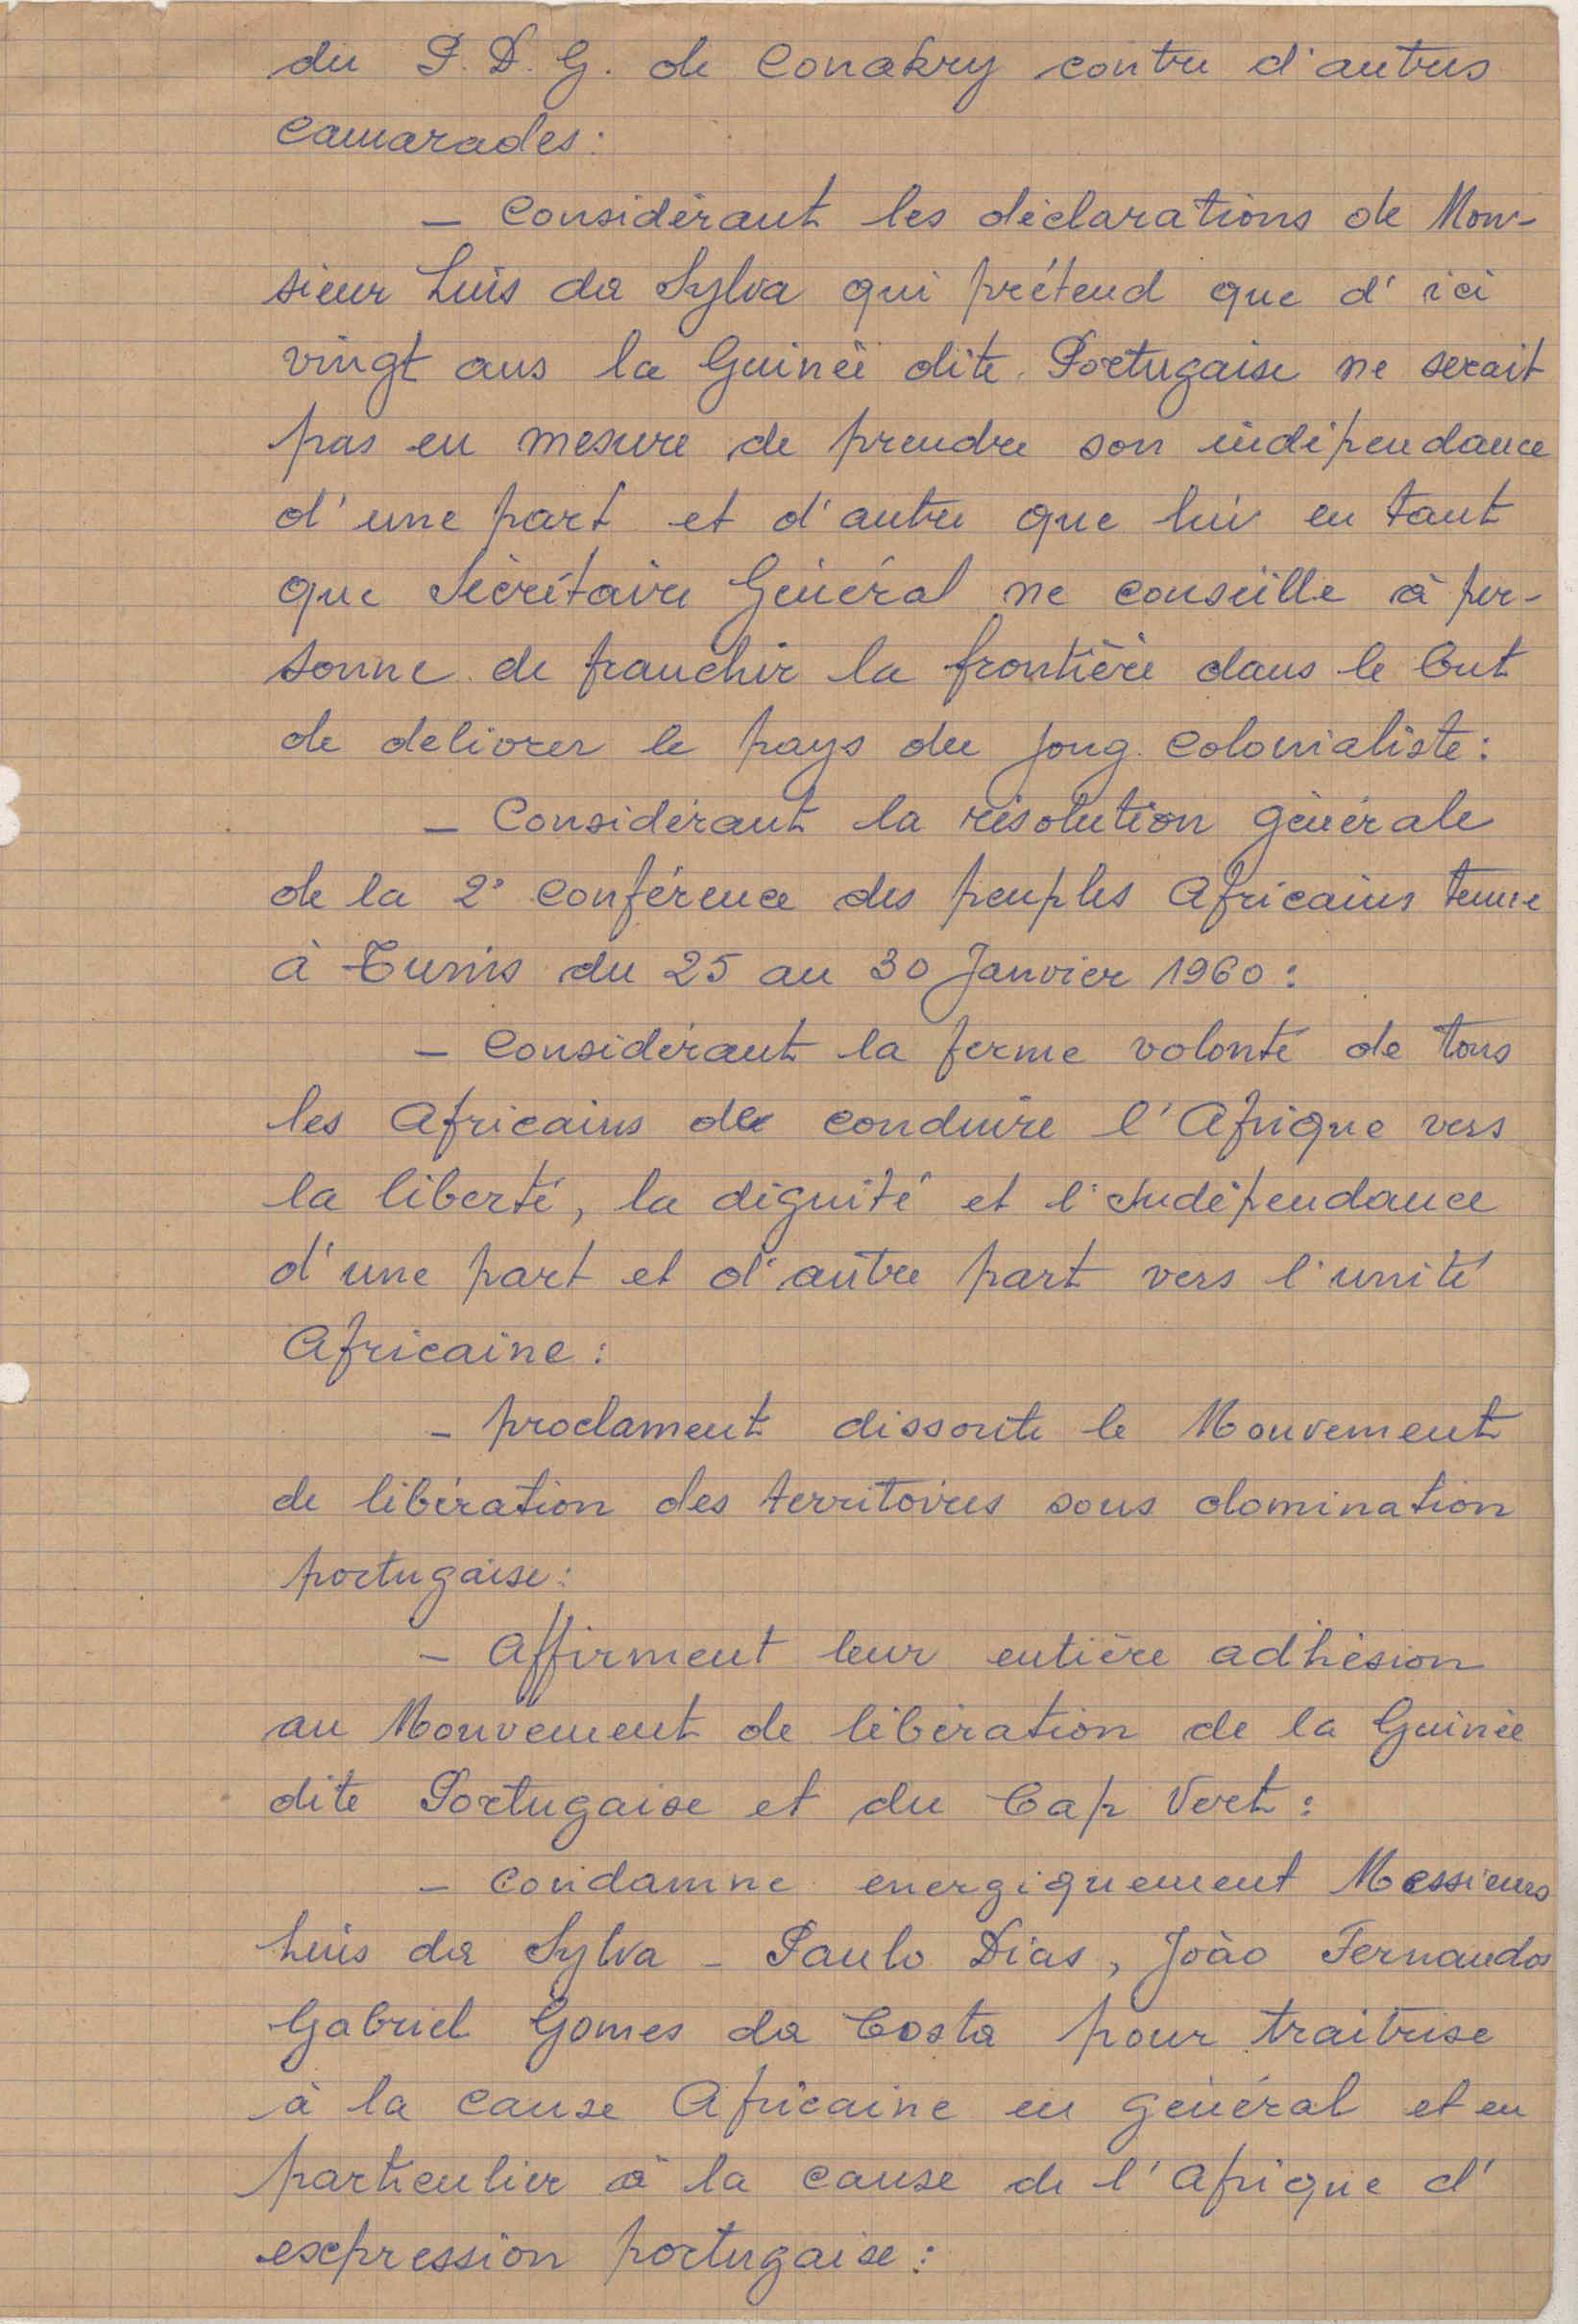 du P. D. G. de Conakry contre d'autres
camarades:
— Considérant les déclarations de Mon-
sieur Luis da Sylva qui prétend que d'ici
vingt ans la Guinée dite Portugaise ne serait
pas en mesure de prendre son indépendance
d'une part et d'autre que lui en tant
que Sécrétaire Général ne conseille à per-
sonne de franchir la frontière dans le but
de delivrer le pays du joug colonialiste:
— Considérant la résolution générale
de la 2° Conférence des peuples Africains tenue
à Tunis du 25 au 30 Janvier 1960:
— Considérant la ferme volonté de tous
les Africains de conduire l'Afrique vers
la liberté, la dignité et l'Indépendance
d'une part et d'autre part vers l'unité
Africaine:
— proclament dissoute le Mouvement
de libération des territoires sous domination
portugaise:
— Affirment leur entière adhésion
au Mouvement de libération de la Guinée
dite Portugaise et du Cap Vert:
— Condamne energiquement Messieurs
Luis da Sylva — Paulo Dias, João Fernandos
Gabriel Gomes da Costa pour traitrise
à la cause Africaine en général et en
particulier à la cause de l'Afrique d'
expression portugaise: